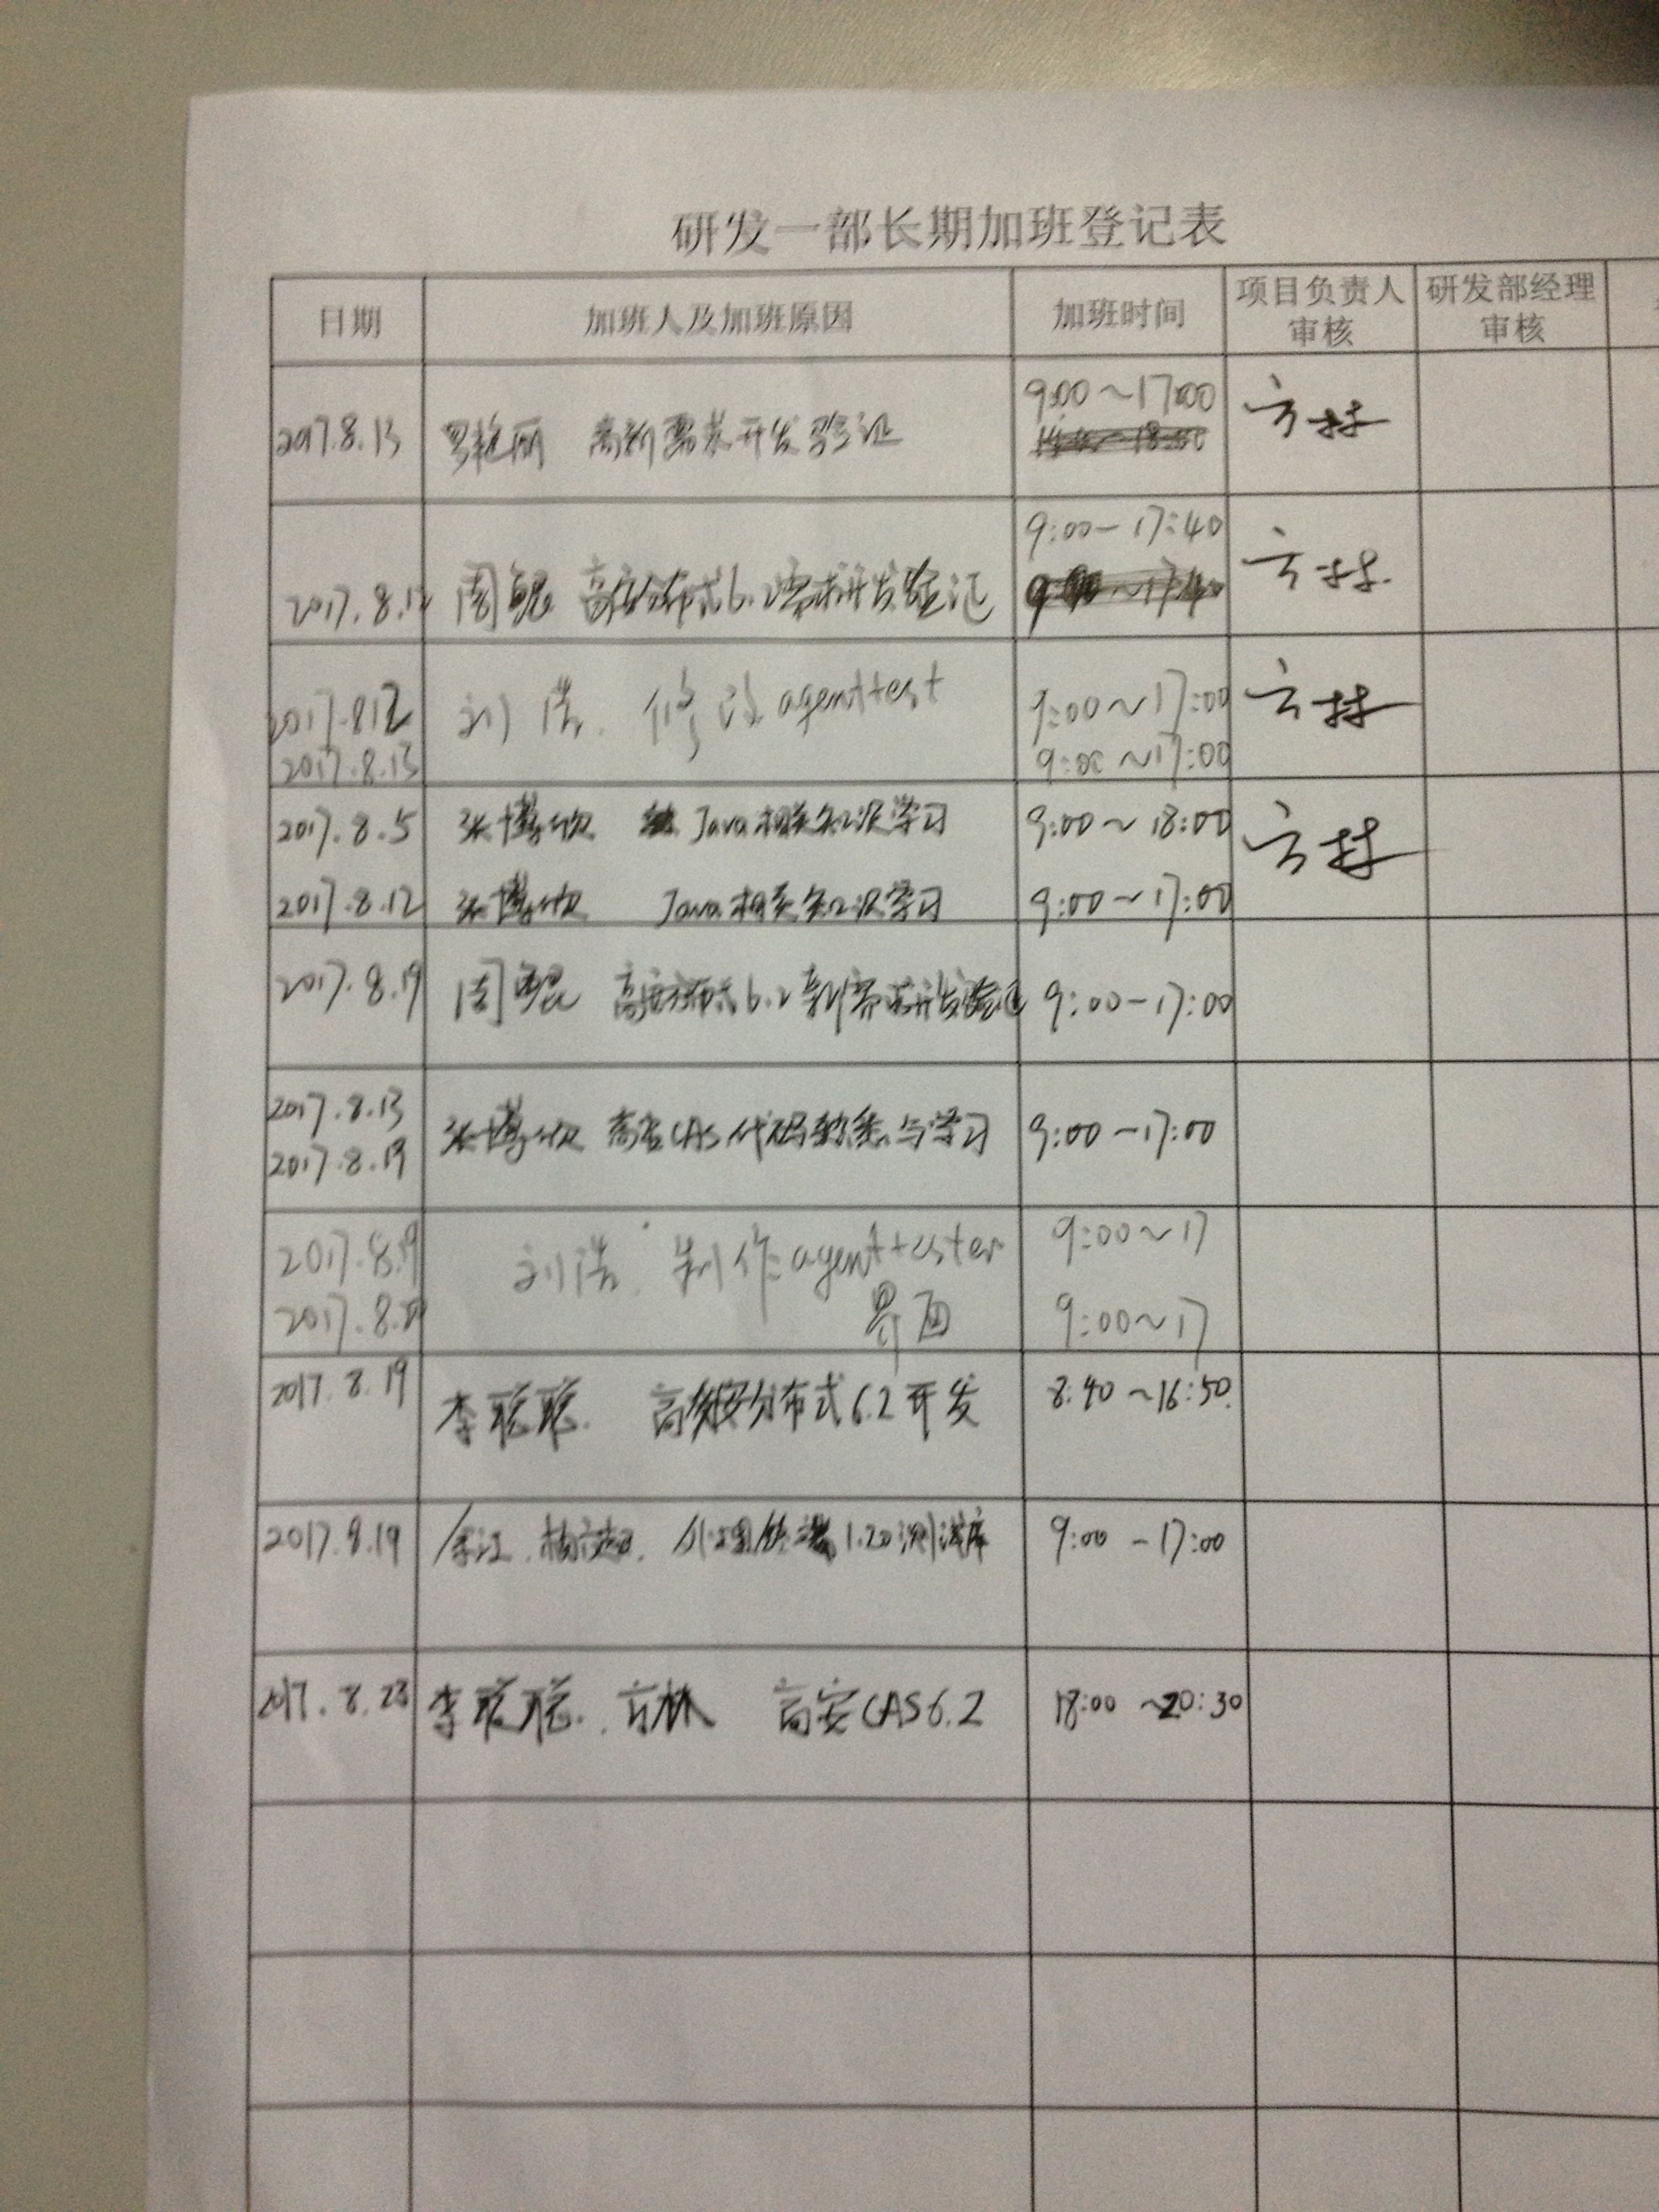 研发一部长期加班登记表
日期 加班人及加班原因 加班时间 项目负责人审核 研发部经理审核
2017.8.13 罗艳丽 高新需求开发验证 9:00~17:00 方林
2017.8.12 周鲲 高安分布式6.2需求开发验证 9:00-17:40 方林
2017.8.12 刘浩. 修改agenttest 9:00~17:00 方林
2017.8.13 9:00~17:00
2017.8.5 张博钦 Java相关知识学习 9:00~18:00 方林
2017.8.12 张博钦 Java相关知识学习 9:00~17:00
2017.8.19 周鲲 高安分布式6.2新需求开发验证 9:00-17:00
2017.8.13
2017.8.19 张博钦 高安CAS代码熟悉与学习 9:00-17:00
2017.8.19 刘浩. 制作agenttester 9:00~17
2017.8.20 界面 9:00~17
2017.8.19 李聪聪. 高级分布式6.2开发 8:40~16:50.
2017.8.19 余江. 杨超. 1.20测试库 9:00-17:00
2017.8.23 李聪聪.、方林 高安CAS6.2 18:00~20:30